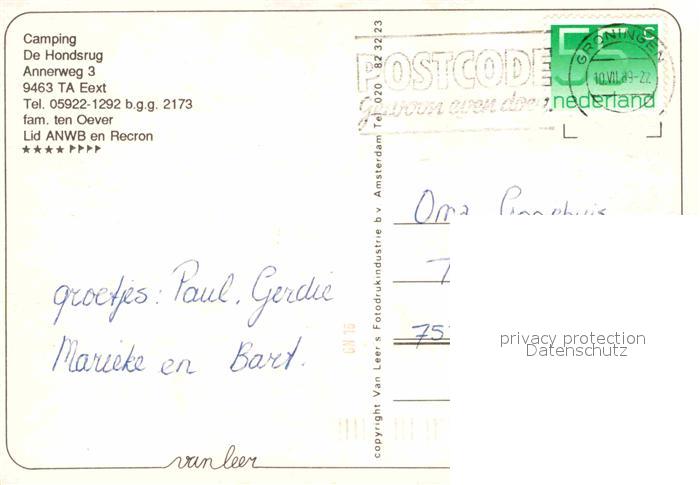 Camping
De Hondsrug
Annerweg 3
9463 TA Eext
Tel. 05922-1292 b.g.g. 2173
fam. ten Oever
Lid ANWB en Recron
groetjes: Paul, Gerdie
Marieke en Bart.
van leer
copyright Van Leer's Fotodrukindustrie b.v. Amsterdam Tel. 020 - 82 32 23
GN 16
POSTCODE
gewoon even doen
55 c
nederland
GRONINGEN
10.VII.89-22
Oma
75
privacy protection
Datenschutz